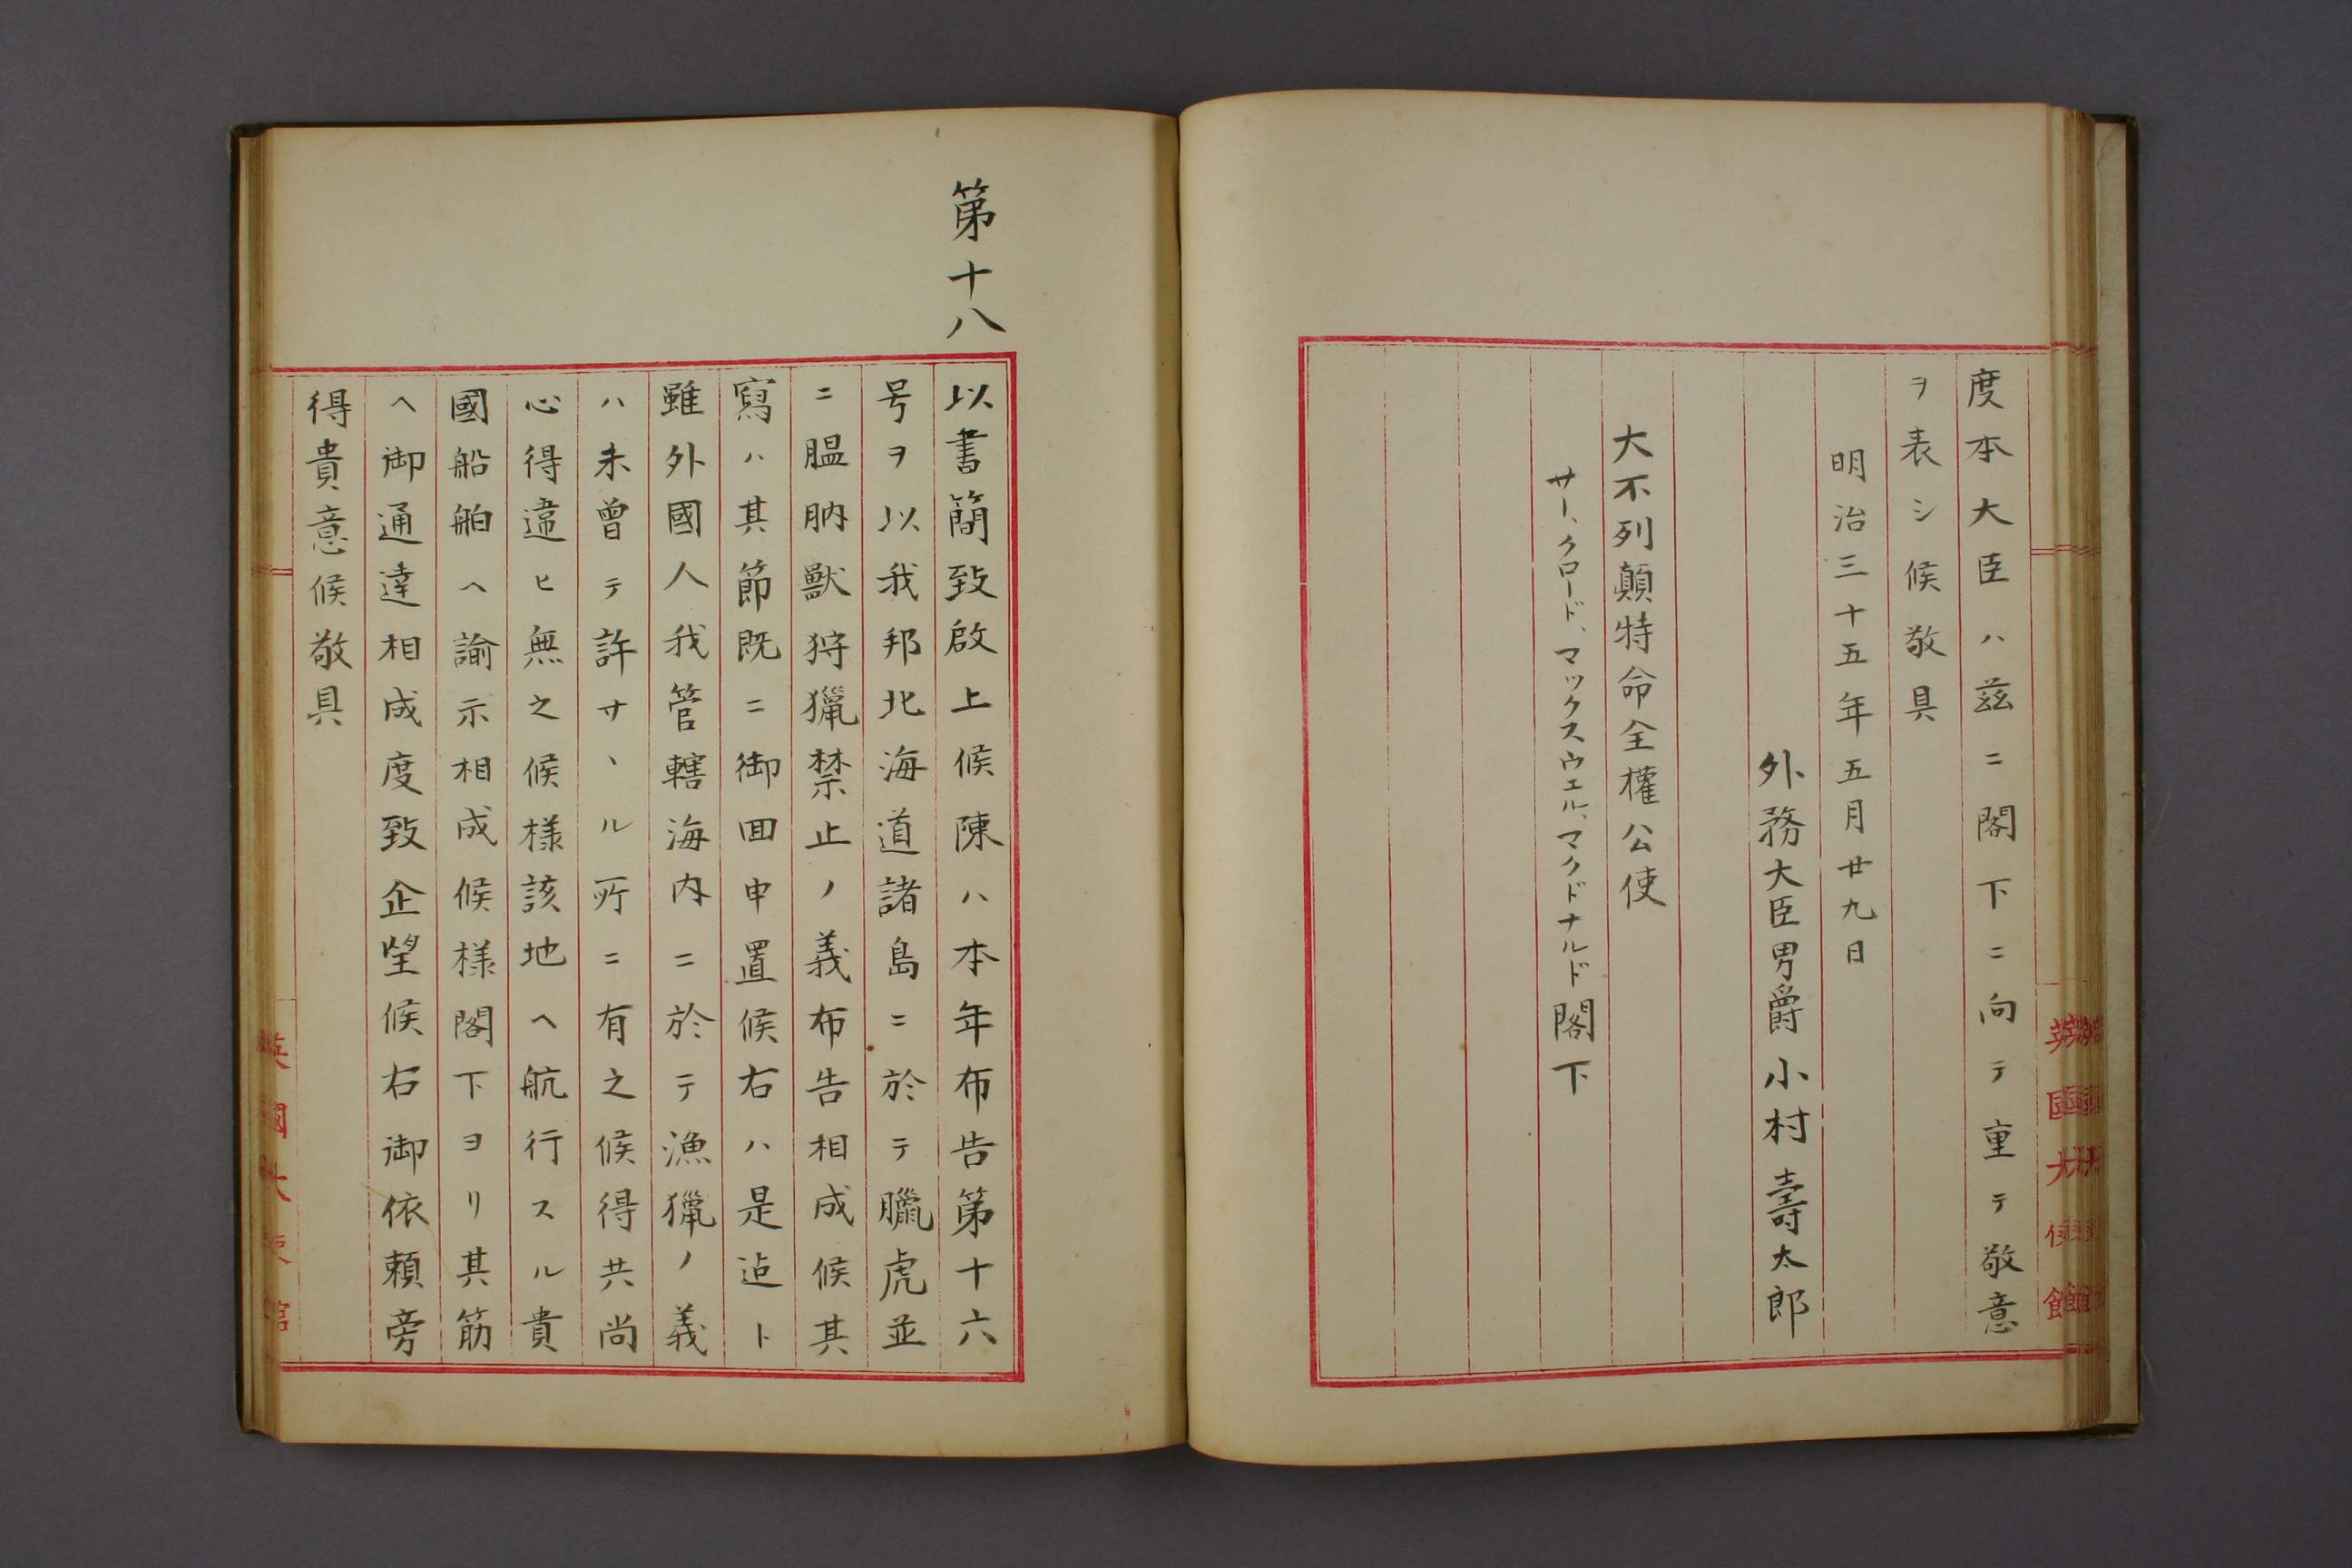 度本大臣ハ茲ニ閣下ニ向テ重テ敬意
ヲ表シ候敬具
明治三十五年五月廿九日
外務大臣男爵小村壽太郎
大不列顛特命全權公使
サー、クロード、マックスウェル、マクドナルド閣下
英國大使館
第十八
以書簡致啟上候陳ハ本年布告第十六
号ヲ以我邦北海道諸島ニ於テ臘虎並
ニ膃肭獸狩獵禁止ノ義布告相成候其
寫ハ其節既ニ御回申置候右ハ是迠ト
雖外國人我管轄海内ニ於テ漁獵ノ義
ハ未曾テ許サヽル所ニ有之候得共尚
心得違ヒ無之候様該地ヘ航行スル貴
國船舶ヘ諭示相成候様閣下ヨリ其筋
ヘ御通達相成度致企望候右御依頼旁
得貴意候敬具
英國大使館